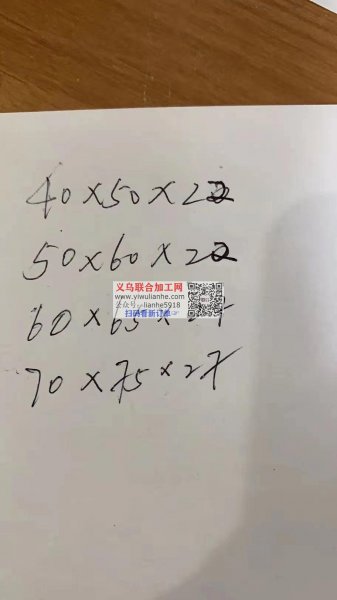 40×50×22
50×60×22
义乌联合加工网
www.yiwulianhe.com
公众号:lianhe5918
扫码看新订单
60×65×
70×75×27